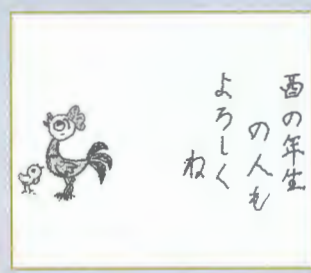 酉の年生
の人も
よろしく
ね